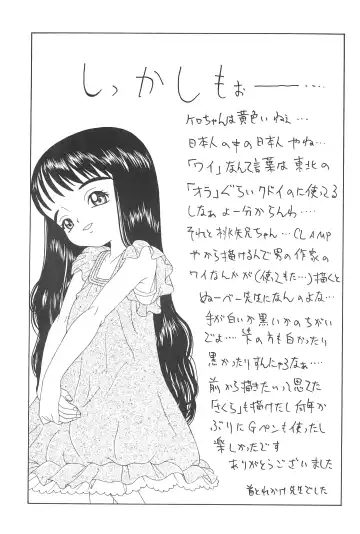 しっかしもぉー……
ケロちゃんは黄色いねぇ…
日本人の中の日本人やね…
「ワイ」なんて言葉は東北の
「オラ」ぐらいクドイのに使てる
しなぁ よー分からんわ…
それと桃矢兄ちゃん…CLAMP
やから描けるんで男の作家の
ワイなんかが(使てもた…)描くと
ぬーべー先生になんのよな…
手が白いか黒いかのちがい
でよ… の方も白かったり
黒かったりすんにゃろなぁ…
前から描きたいって思てた
「さくら」も描けたし何年か
ぶりにGペンも使ったし
楽しかったです
ありがとうございました
首とれかけ先生でした